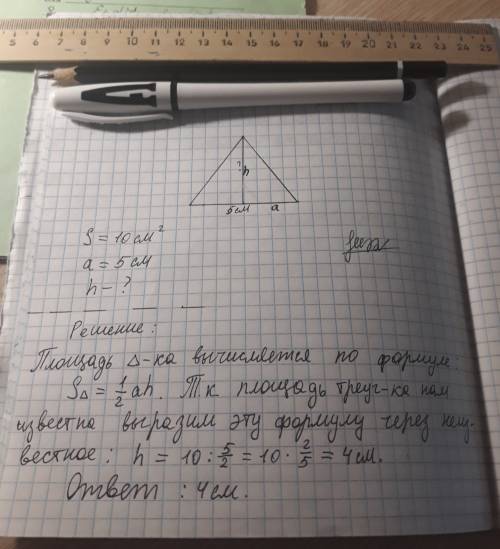 5 6 7 8 9 10 11 12 13 14 15 16 17 18 19 20 21 22 23 24 25
h
?
5см a
S = 10 см²
a = 5 см
h - ?
Решение:
Площадь Δ-ка вычисляется по формуле:
S△ = 1/2 ah. Т к площадь треуг-ка нам
известна выразим эту формулу через неиз-
вестное: h = 10 : 5/2 = 10 · 2/5 = 4 см.
Ответ : 4 см.